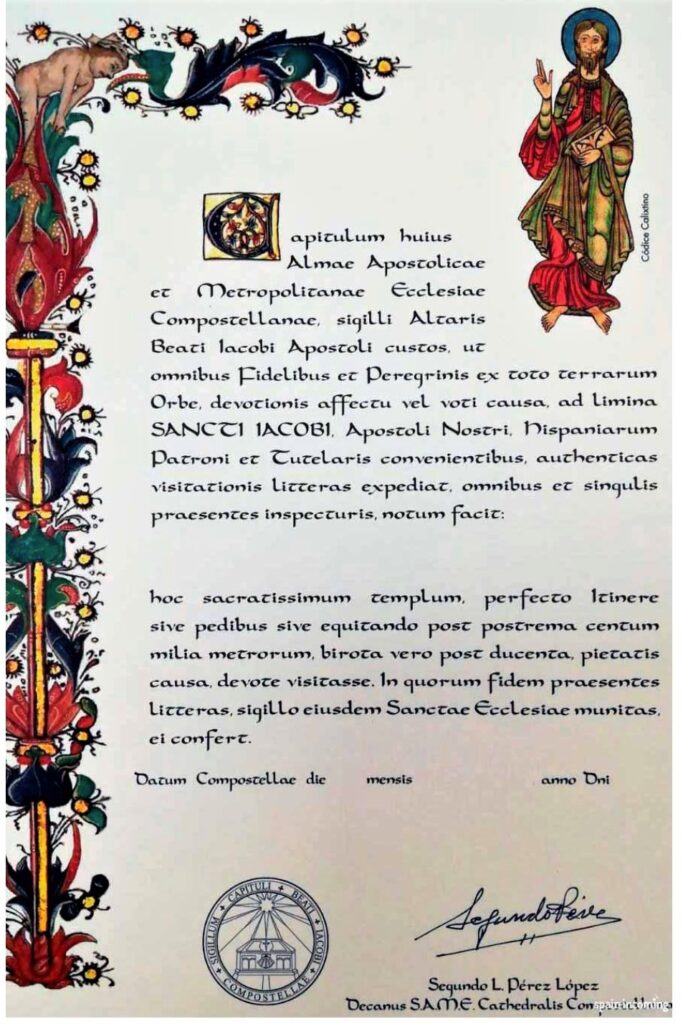 Códice Calixtino
Capitulum huius
Almae Apostolicae
et Metropolitanae Ecclesiae
Compostellanae, sigilli Altaris
Beati Iacobi Apostoli custos, ut
omnibus Fidelibus et Peregrinis ex toto terrarum
Orbe, devotionis affectu vel voti causa, ad limina
SANCTI IACOBI, Apostoli Nostri, Hispaniarum
Patroni et Tutelaris convenientibus, authenticas
visitationis litteras expediat, omnibus et singulis
praesentes inspecturis, notum facit:
hoc sacratissimum templum, perfecto Itinere
sive pedibus sive equitando post postrema centum
milia metrorum, birota vero post ducenta, pietatis
causa, devote visitasse. In quorum fidem praesentes
litteras, sigillo eiusdem Sanctae Ecclesiae munitas,
ei confert.
Datum Compostellae die mensis anno Dni
SIGILLUM CAPITULI BEATI IACOBI COMPOSTELLAE
Segundo Pérez
Segundo L. Pérez López
Decanus S.A.M.E. Cathedralis
spainincoming